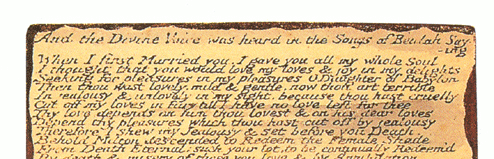 And the Divine Voice was heard in the Songs of Beulah Say
-ing
When I first Married you, I gave you all my whole Soul
I thought that you would love my loves & joy in my delights
Seeking for pleasures in my pleasures O Daughter of Babylon
Then thou wast lovely, mild & gentle, now thou art terrible
In jealousy & unlovely in my sight, because thou hast cruelly
Cut off my loves in fury till I have no love left for thee
Thy love depends on him thou lovest & on his dear loves
Depend thy pleasures which thou hast cut off by jealousy
Therefore I shew my Jealousy & set before you Death.
Behold Milton descended to Redeem the Female Shade
From Death Eternal; such your lot, to be continually Redeem'd
By death & misery of those you love & by Annihilation